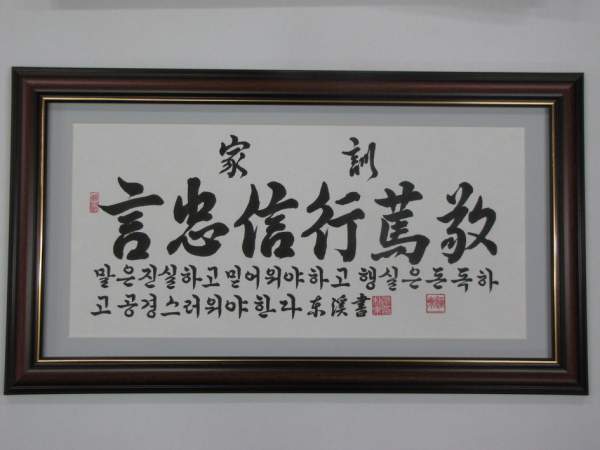 家訓
言忠信行篤敬
말은진실하고믿어워야하고 행실은돈독하
고공경스러워야한다 东溪書